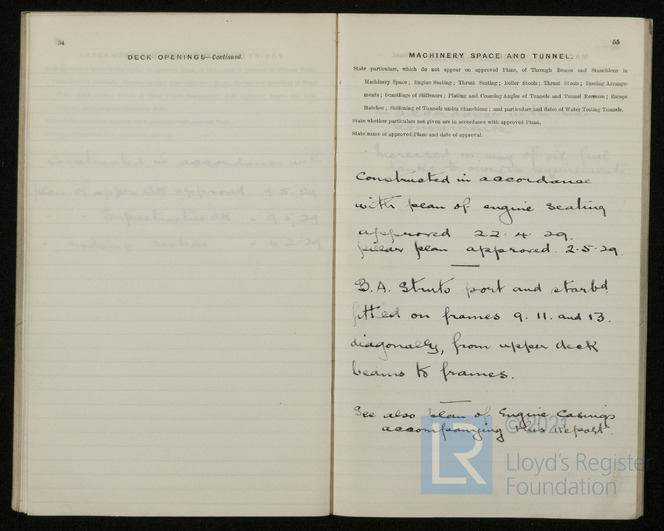 54
DECK OPENINGS—Continued.
55
MACHINERY SPACE AND TUNNEL.
State particulars, which do not appear on approved Plans, of Through Beams and Stanchions in
Machinery Space; Engine Seating; Thrust Seating; Boiler Stools; Thrust Stools; Bossing Arrange-
ments; Scantlings of Stiffeners; Plating and Coaming Angles of Tunnels and Tunnel Recesses; Escape
Hatches; Stiffening of Tunnels under Stanchions; and particulars and dates of Water Testing Tunnels.
State whether particulars not given are in accordance with approved Plans.
State name of approved Plans and date of approval.
Constructed in accordance
with plan of engine seating
approved 22.4.29.
pillar plan approved. 2.5.29.
B.A. Struts port and starbd
fitted on frames 9. 11. and 13.
diagonally, from upper deck
beams to frames.
See also plan of Engine Casings
accompanying this report.
© 2021
LR
Lloyd's Register
Foundation